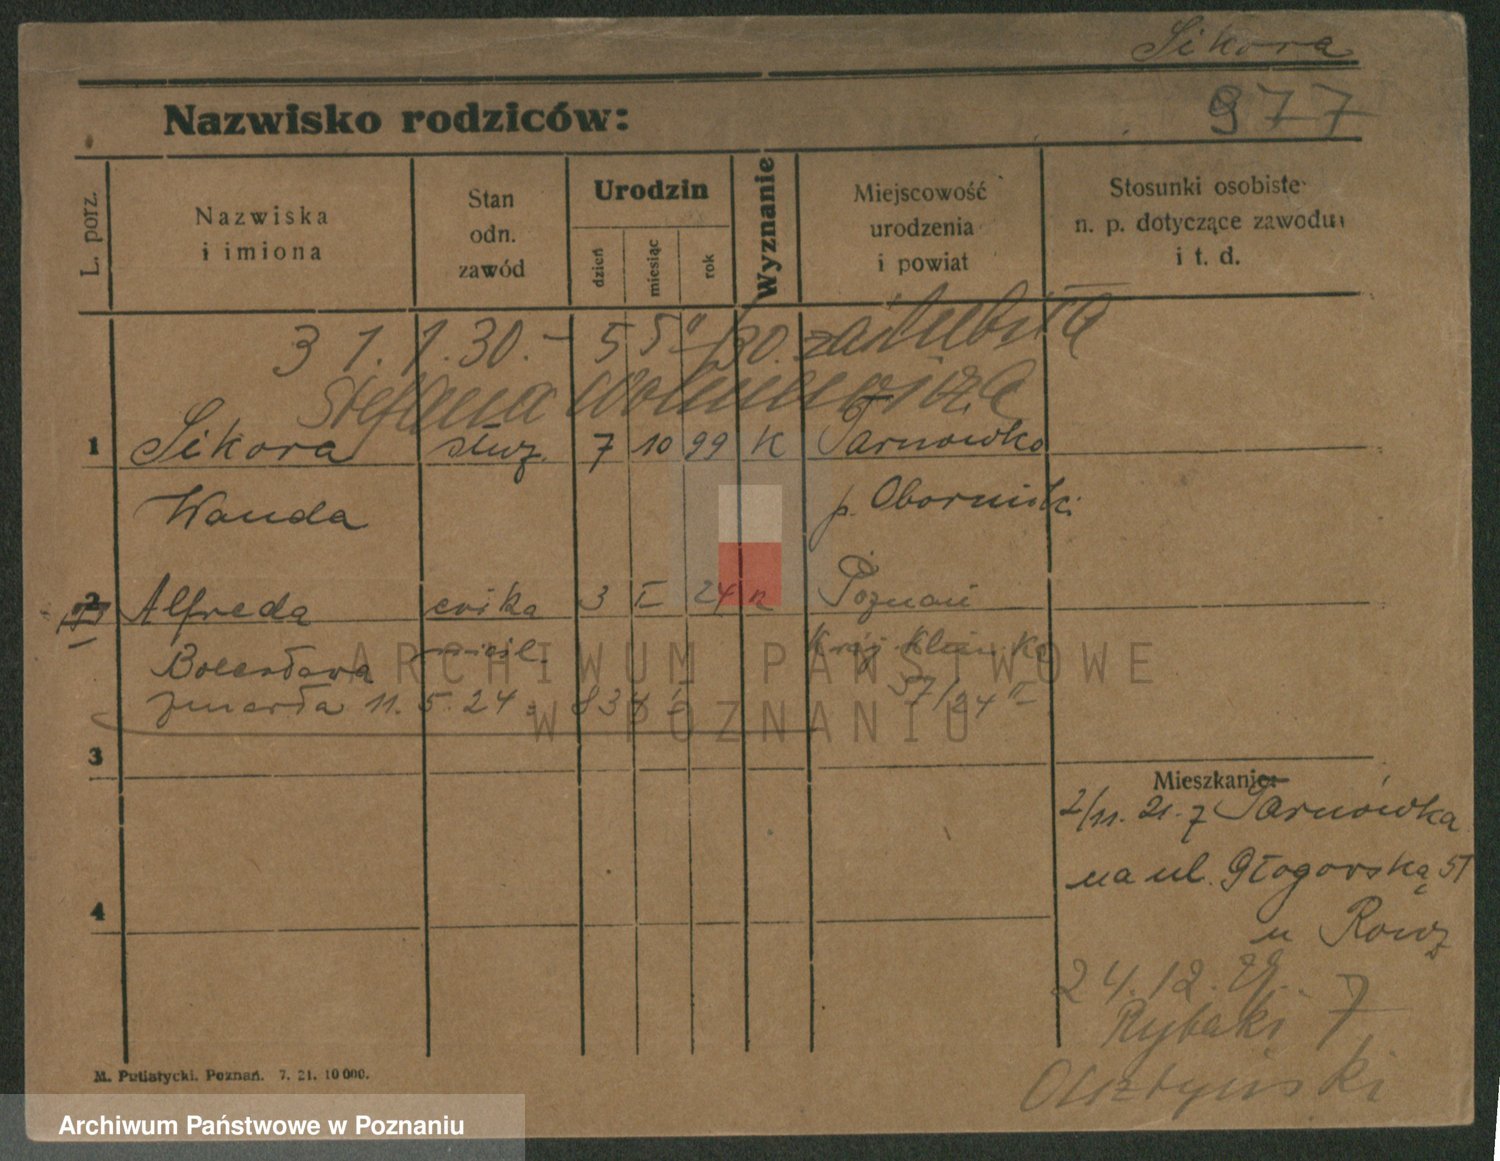 Sikora
Nazwisko rodziców:
977
L. porz.
Nazwiska
i imiona
Stan
odn.
zawód
Urodzin
dzień
miesiąc
rok
Wyznanie
Miejscowość
urodzenia
i powiat
Stosunki osobiste
n. p. dotyczące zawodu
i t. d.
31.1.30.- 55 /30. zaślubiła
Stefana
1 Sikora służ. 7 10 99 K Tarnowko
Wanda p. Oborniki
2 Alfreda córka 3 II 24 Poznań
Bolesława nieśl.
zmarła 11.5.24
57/24 II
3
Mieszkanie:
2/11. 21. z Tarnówka
na ul. Głogowską 51
4
u
24.12.29. 7
Rybaki
Olsztyński
M. Putiatycki. Poznań. 7. 21. 10 000.
ARCHIWUM PAŃSTWOWE
W POZNANIU
Archiwum Państwowe w Poznaniu